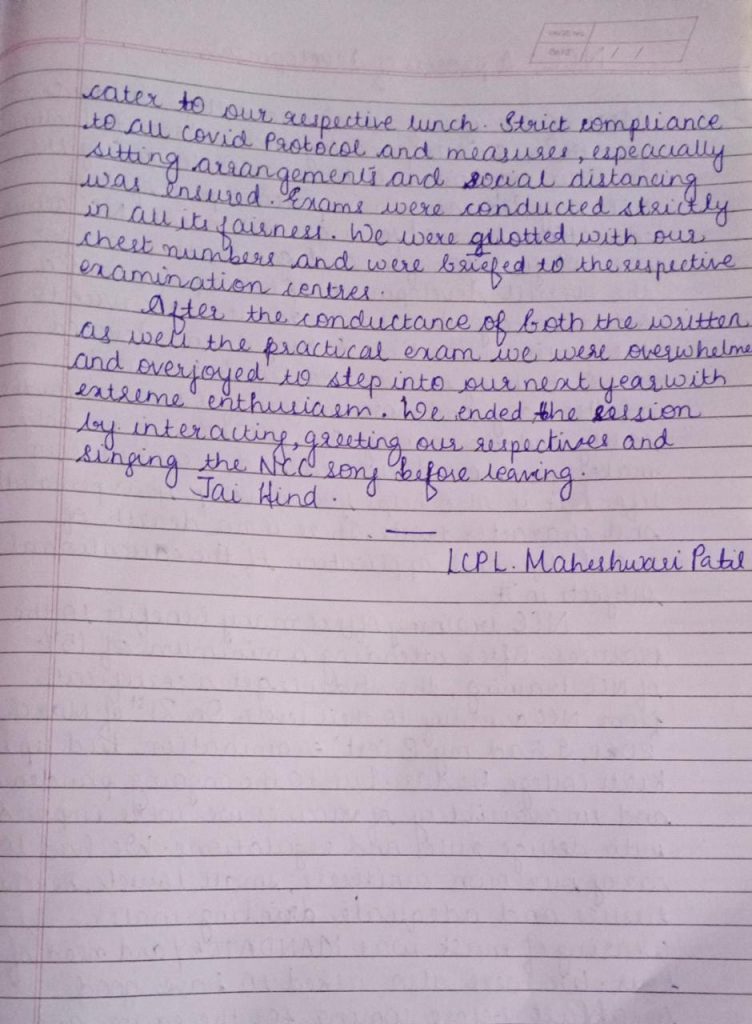 PAGE NO.
DATE: / /
cater to our respective lunch. Strict compliance
to all covid Protocol and measures, espeacially
sitting arrangements and social distancing
was ensured. Exams were conducted strictly
in all its fairness. We were allotted with our
chest numbers and were briefed to the respective
examination centres.
After the conductance of both the written
as well the practical exam we were overwhelme
and overjoyed to step into our next year with
extreme enthusiasm. We ended the session
by interacting, greeting our respectives and
singing the NCC song before leaving.
Jai Hind.
LCPL. Maheshwari Patil